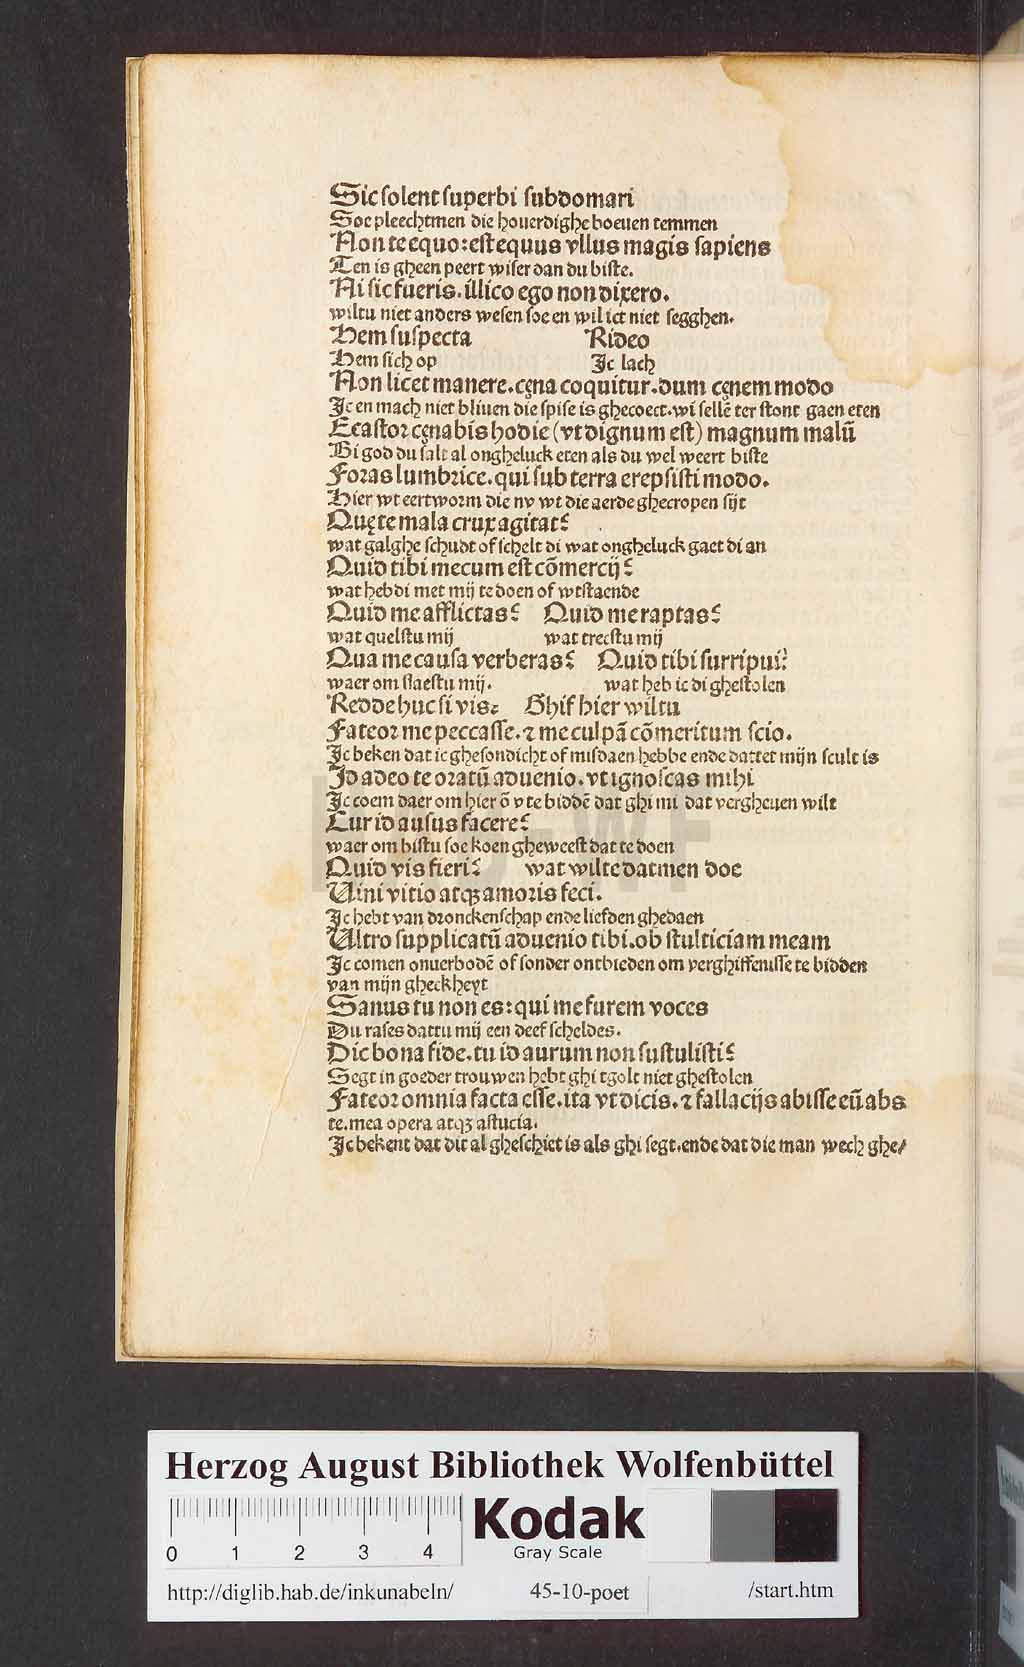 Sic solent superbi subdomari
Soe pleechtmen die houerdighe boeuen temmen
Non te equo: est equus vllus magis sapiens
Ten is gheen peert wiser dan du biste.
Ni sic fueris. illico ego non dixero.
wiltu niet anders wesen soe en wil ict niet segghen.
Hem suspecta Rideo
Hem sich op Ic lach
Non licet manere. cęna coquitur. dum cęnem modo
Ic en mach niet bliuen die spise is ghecoect. wi sellē ter stont gaen eten
Ecastor cęnabis hodie (vt dignum est) magnum malū
Bi god du salt al ongheluck eten als du wel weert biste
Foras lumbrice. qui sub terra erepsisti modo.
Hier wt eertworm die nv wt die aerde ghecropen sijt
Quę te mala crux agitat?
wat galghe schudt of schelt di wat ongheluck gaet di an
Quid tibi mecum est cōmercij?
wat hebdi met mij te doen of wtstaende
Quid me afflictas? Quid me raptas?
wat quelstu mij wat trecstu mij
Qua me causa verberas? Quid tibi surripui?
waer om slaestu mij. wat heb ic di ghestolen
Redde huc si vis? Ghif hier wiltu
Fateor me peccasse. ⁊ me culpā cōmeritum scio.
Ic beken dat ic ghesondicht of misdaen hebbe ende dattet mijn scult is
Id adeo te oratū aduenio. vt ignoscas mihi
Ic coem daer om hier ō v te biddē dat ghi mi dat vergheuen wilt
Cur id ausus facere?
waer om bistu soe koen gheweest dat te doen
Quid vis fieri? wat wilte datmen doe
Uini vitio atqꝫ amoris feci.
Ic hebt van dronckenschap ende liefden ghedaen
Ultro supplicatū aduenio tibi. ob stulticiam meam
Ic comen onuerbodē of sonder ontbieden om verghiffenisse te bidden
van mijn gheckheyt
Sanus tu non es: qui me furem voces
Du rases dattu mij een deef scheldes.
Dic bona fide. tu id aurum non sustulisti?
Segt in goeder trouwen hebt ghi tgolt niet ghestolen
Fateor omnia facta esse. ita vt dicis. ⁊ fallacijs abisse eū abs
te. mea opera atqꝫ astucia.
Ic bekent dat dit al gheschiet is als ghi segt. ende dat die man wech ghe/
HAB-WF
Herzog August Bibliothek Wolfenbüttel
0 1 2 3 4
Kodak
Gray Scale
http://diglib.hab.de/inkunabeln/ 45-10-poet /start.htm